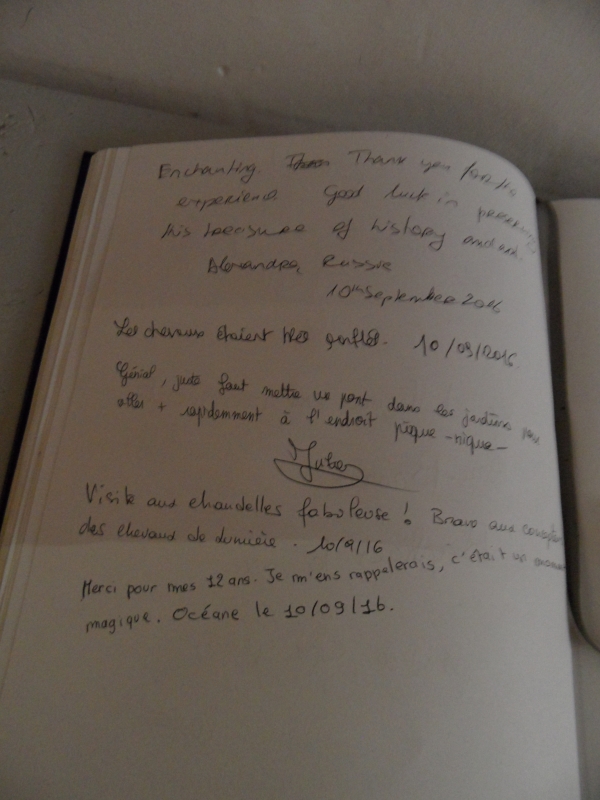 Enchanting. Thank you for the
experience. Good luck in preserving
this treasure of history and art.
Alexandra Russie
10th September 2016
Les chevaux étaient très gentils. 10/09/2016
Génial, juste faut mettre un pont dans les jardins pour
aller + rapidemment à l'endroit pique-nique-
Visite aux chandelles fabuleuse! Bravo aux
des chevaux de lumière. 10/9/16
Merci pour mes 12 ans. Je m'ens rappelerais, c'était un moment
magique. Océane le 10/09/16.